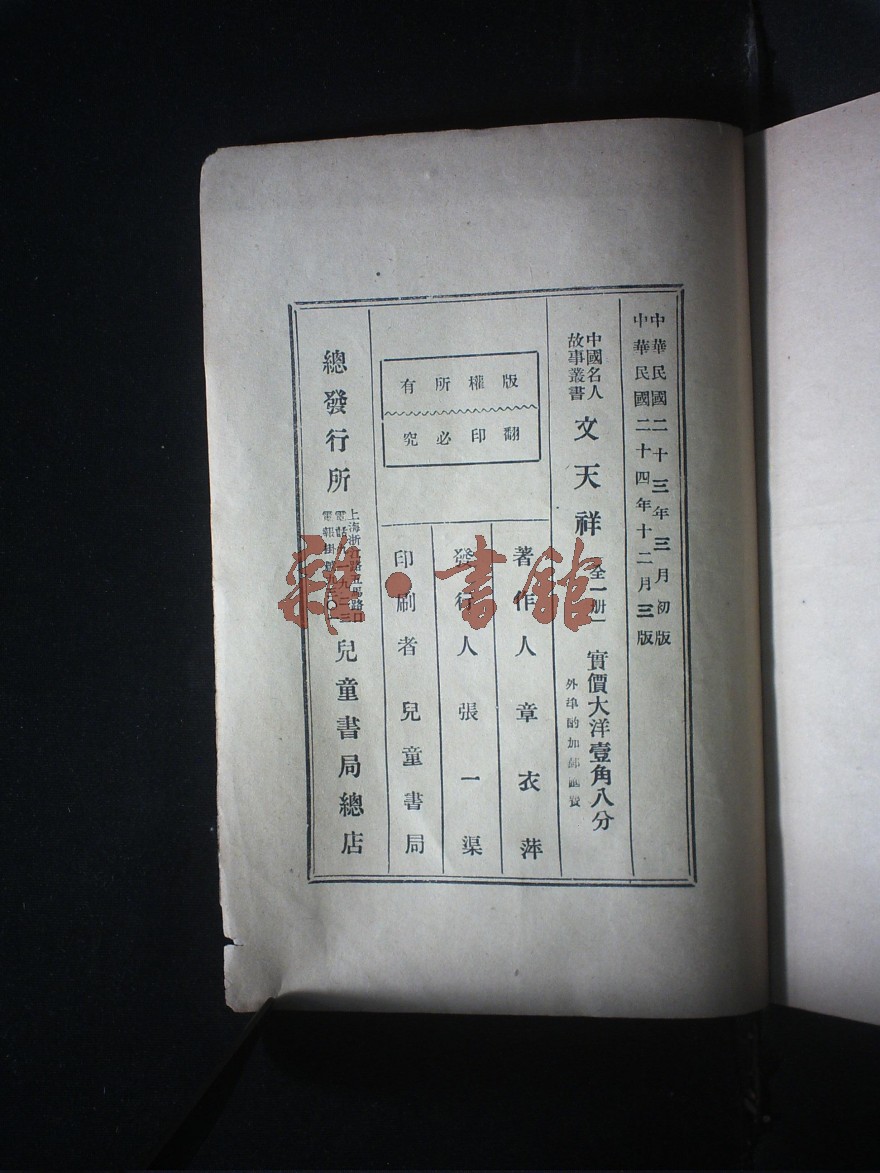 中華民國二十三年三月初版
中華民國二十四年十二月三版
中國名人
故事叢書
文天祥
全一册
實價大洋壹角八分
外埠酌加郵匯費
版權所有
翻印必究
著作人章衣萍
發行人張一渠
印刷者兒童書局
總發行所
上海浙江路五馬路口
電話九一九二三
電報掛號
兒童書局總店
雜·書館